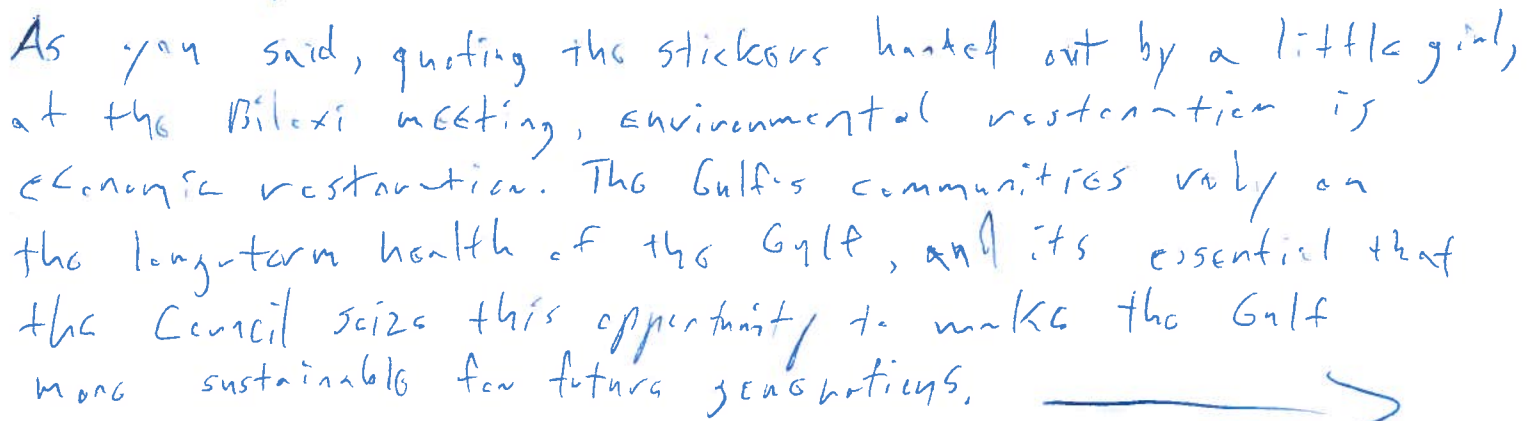 As you said, quoting the stickers handed out by a little girl,
at the Biloxi meeting, environmental restoration is
economic restoration. The Gulf's communities rely on
the long-term health of the Gulf, and its essential that
the Council seize this opportunity to make the Gulf
more sustainable for future generations.